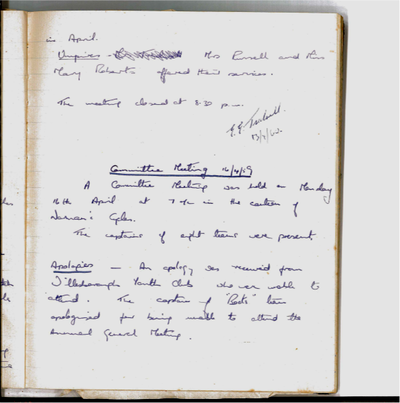 in April.
Umpires - Mrs Purcell and Miss
Mary Roberts offered their services.
The meeting closed at 8.30 p.m.
Committee Meeting
A Committee Meeting was held on Monday
16th April at 7 p.m. in the canteen of
The captains of eight teams were present.
Apologies — An apology was received from
Youth Club who were unable to
attend. The captain of "Bats" team
apologised for being unable to attend the
Annual General Meeting.